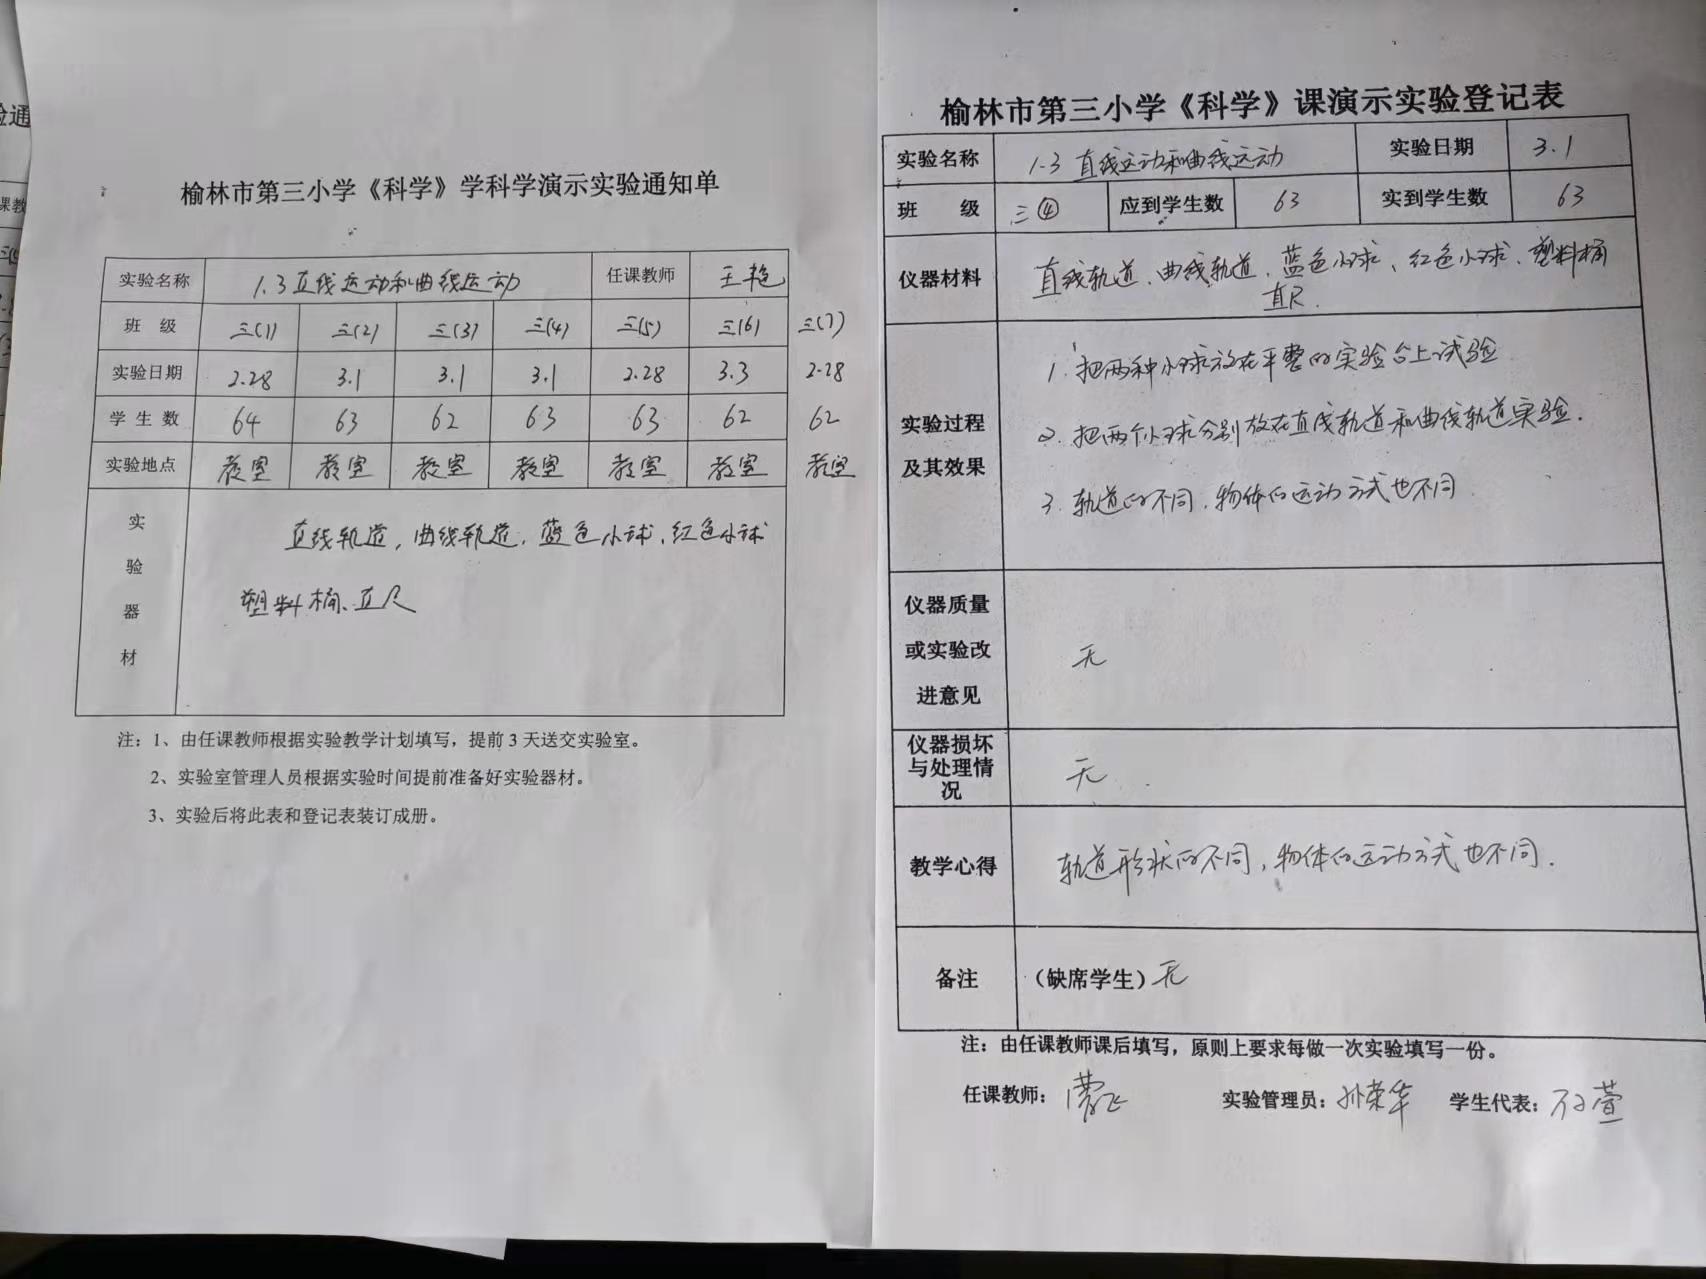 榆林市第三小学《科学》学科学演示实验通知单
实验名称 1.3直线运动和曲线运动 任课教师 王艳
班 级 三(1) 三(2) 三(3) 三(4) 三(5) 三(6) 三(7)
实验日期 2.28 3.1 3.1 3.1 2.28 3.3 2.28
学 生 数 64 63 62 63 63 62 62
实验地点 教室 教室 教室 教室 教室 教室 教室
实验器材
直线轨道,曲线轨道,蓝色小球,红色小球
塑料桶、直尺
注:1、由任课教师根据实验教学计划填写,提前3天送交实验室。
2、实验室管理人员根据实验时间提前准备好实验器材。
3、实验后将此表和登记表装订成册。
榆林市第三小学《科学》课演示实验登记表
实验名称 1.3 直线运动和曲线运动 实验日期 3.1
班 级 三④ 应到学生数 63 实到学生数 63
仪器材料 直线轨道、曲线轨道、蓝色小球、红色小球、塑料桶
直尺.
实验过程及其效果
1. 把两种小球放在平整的实验台上试验
2. 把两个小球分别放在直线轨道和曲线轨道实验.
3. 轨道的不同,物体的运动方式也不同
仪器质量或实验改进意见 无
仪器损坏与处理情况 无
教学心得 轨道形状的不同,物体的运动方式也不同.
备注 (缺席学生)无
注:由任课教师课后填写,原则上要求每做一次实验填写一份。
任课教师: 实验管理员:孙荣华 学生代表: